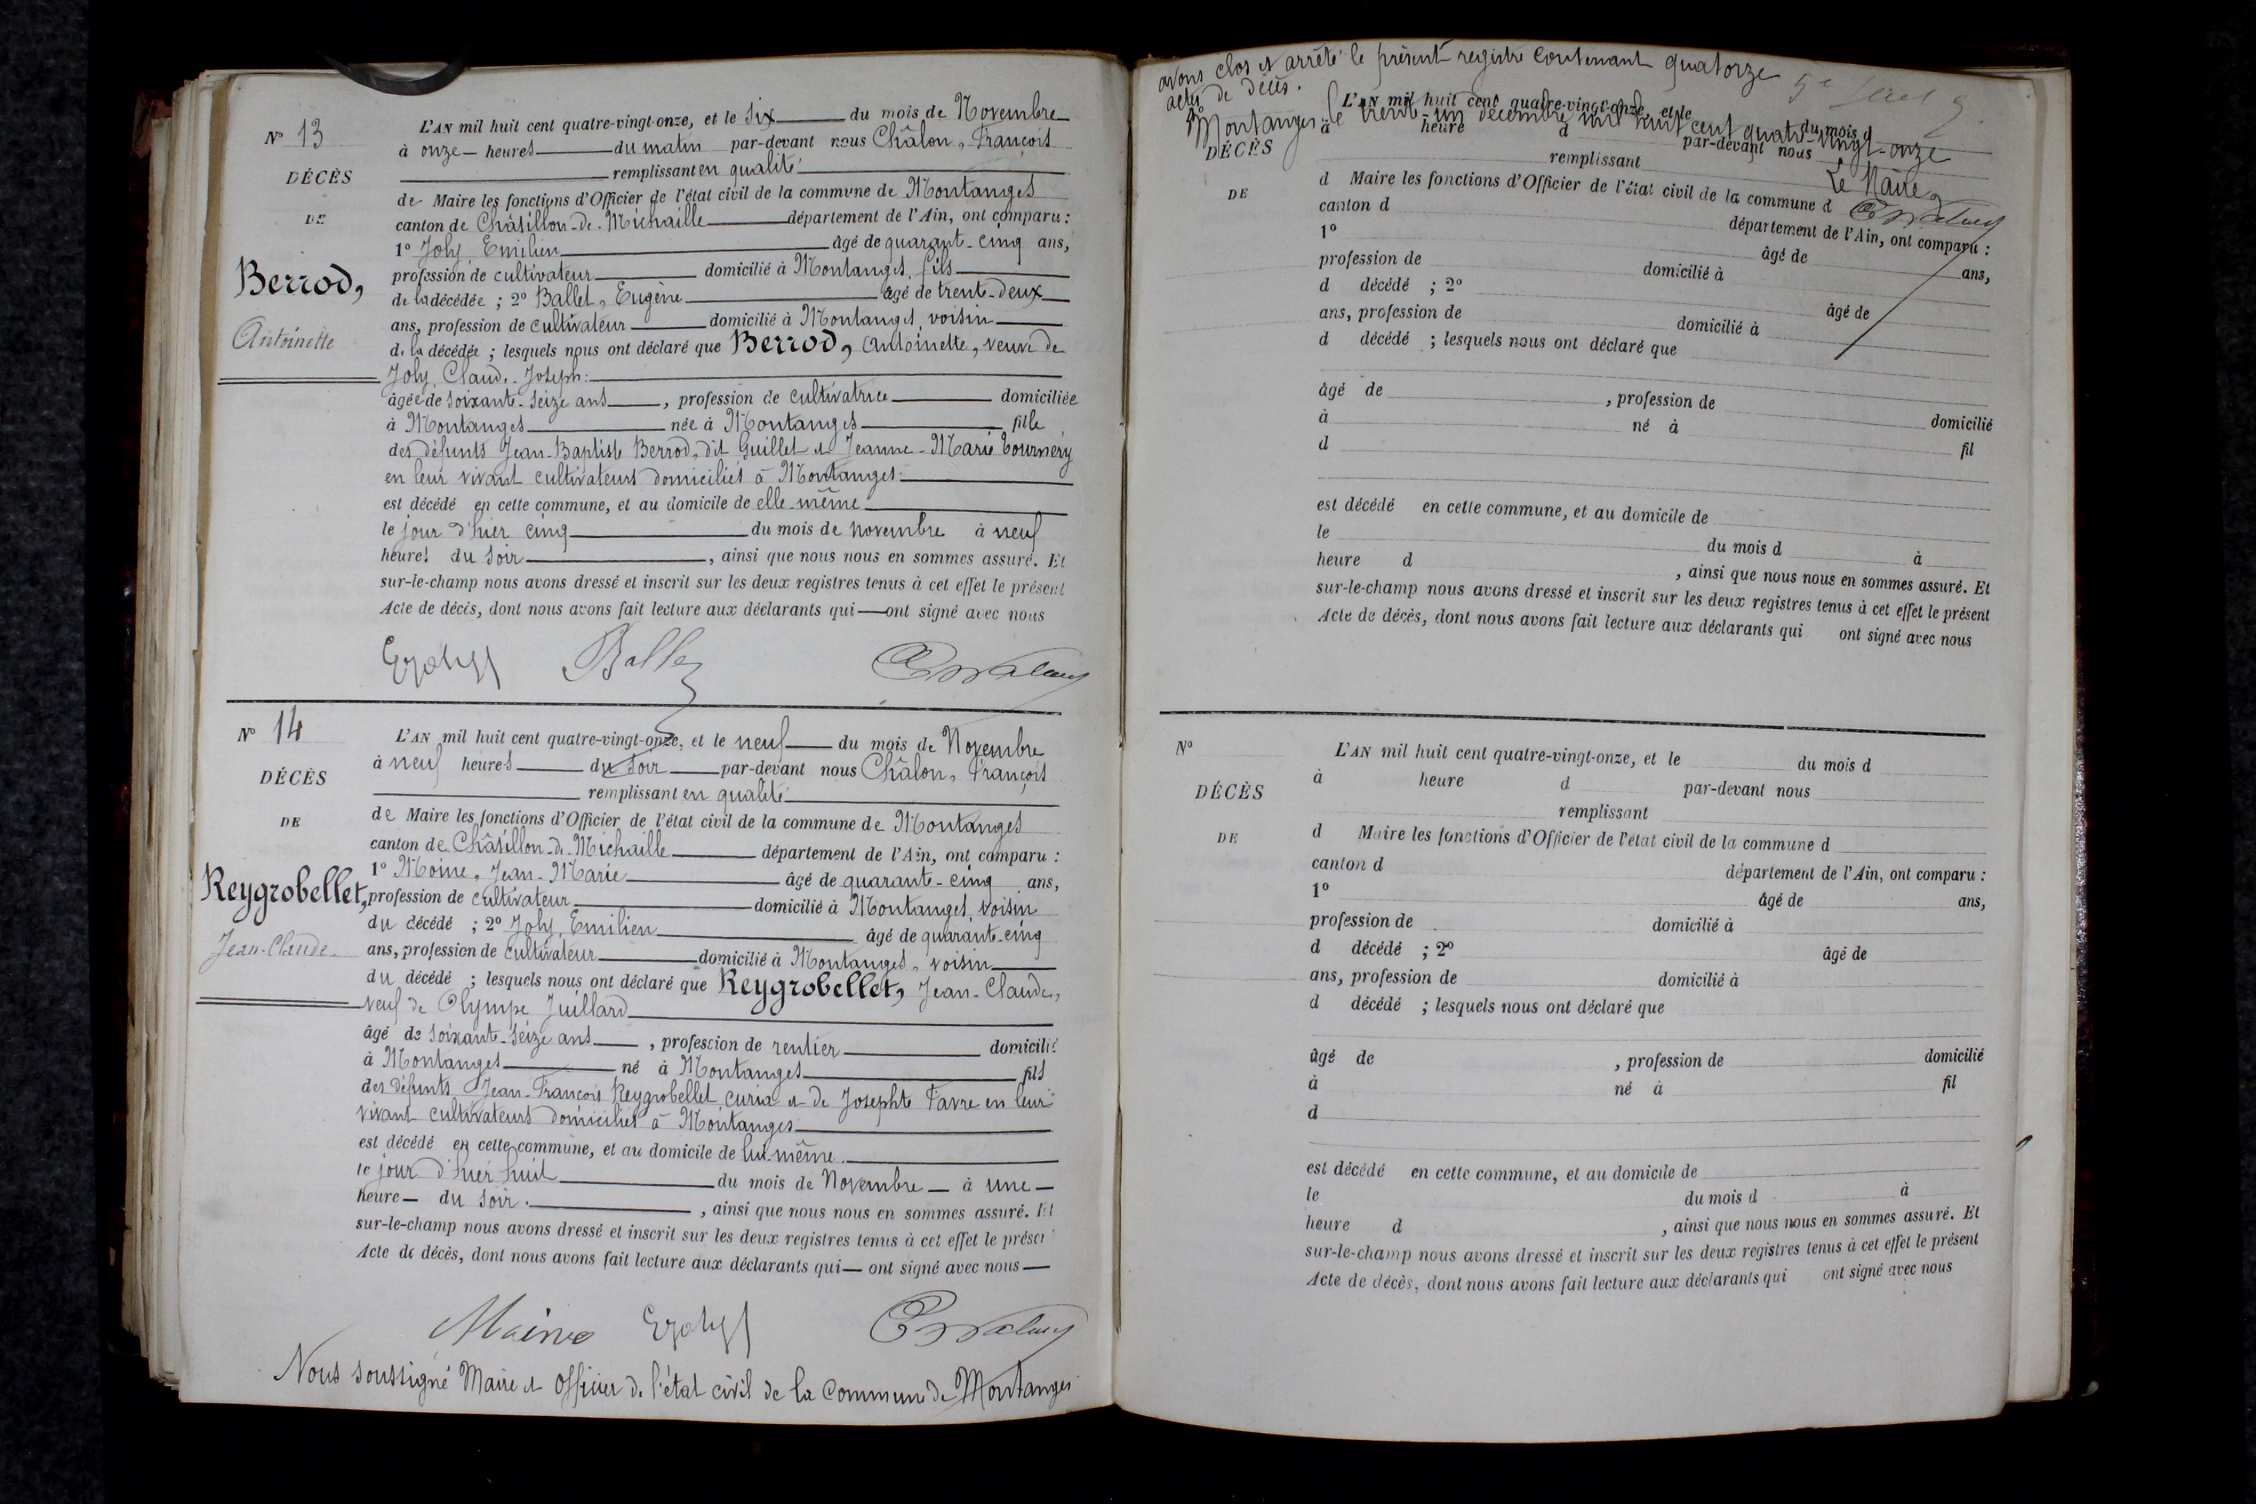 N° 13
DÉCÈS
DE
Berrod,
Antoinette
L'AN mil huit cent quatre-vingt-onze, et le six du mois de Novembre
à onze heures du matin par-devant nous Châlon, François
remplissant en qualité
de Maire les fonctions d'Officier de l'état civil de la commune de Montanges
canton de Châtillon-de-Michaille département de l'Ain, ont comparu :
1° Joly, Emilien âgé de quarante-cinq ans,
profession de cultivateur domicilié à Montanges, fils
de la décédée ; 2° Ballet, Eugène âgé de trente-deux
ans, profession de cultivateur domicilié à Montanges, voisin
de la décédée ; lesquels nous ont déclaré que Berrod, Antoinette, veuve de
Joly, Claude-Joseph:
âgée de soixante-seize ans, profession de cultivatrice domiciliée
à Montanges née à Montanges fille
des défunts Jean-Baptiste Berrod, dit Guillet et Jeanne-Marie Tournéry
en leur vivant cultivateurs domiciliés à Montanges
est décédé en cette commune, et au domicile de elle-même
le jour d'hier cinq du mois de novembre à neuf
heures du soir, ainsi que nous nous en sommes assuré. Et
sur-le-champ nous avons dressé et inscrit sur les deux registres tenus à cet effet le présent
Acte de décès, dont nous avons fait lecture aux déclarants qui ont signé avec nous
EJoly Ballet
N° 14
DÉCÈS
DE
Reygrobellet,
Jean-Claude
L'AN mil huit cent quatre-vingt-onze, et le neuf du mois de Novembre
à neuf heures du soir par-devant nous Châlon, François
remplissant en qualité
de Maire les fonctions d'Officier de l'état civil de la commune de Montanges
canton de Châtillon-de-Michaille département de l'Ain, ont comparu :
1° Moine, Jean-Marie âgé de quarante-cinq ans,
profession de cultivateur domicilié à Montanges, voisin
du décédé ; 2° Joly, Emilien âgé de quarante-cinq
ans, profession de cultivateur domicilié à Montanges, voisin
du décédé ; lesquels nous ont déclaré que Reygrobellet, Jean-Claude,
veuf de Olympe Juillard
âgé de soixante-seize ans, profession de rentier domicilié
à Montanges né à Montanges fils
des défunts Jean-François Reygrobellet, curia et de Josephte Favre en leur
vivant cultivateurs domiciliés à Montanges
est décédé en cette commune, et au domicile de lui-même
le jour d'hier huit du mois de Novembre à une
heure du soir, ainsi que nous nous en sommes assuré. Et
sur-le-champ nous avons dressé et inscrit sur les deux registres tenus à cet effet le présent
Acte de décès, dont nous avons fait lecture aux déclarants qui ont signé avec nous
Moine EJoly
Nous soussigné Maire et Officier de l'état civil de la Commune de Montanges
avons clos et arrêté le présent registre contenant quatorze
actes de décès.
Montanges, le trente-un décembre mil huit cent quatre-vingt-onze
Le Maire,
N°
DÉCÈS
DE
L'AN mil huit cent quatre-vingt-onze, et le du mois d
à heure d par-devant nous
remplissant
d Maire les fonctions d'Officier de l'état civil de la commune d
canton d département de l'Ain, ont comparu :
1° âgé de ans,
profession de domicilié à
d décédé ; 2° âgé de
ans, profession de domicilié à
d décédé ; lesquels nous ont déclaré que
âgé de , profession de domicilié
à né à fil
d
est décédé en cette commune, et au domicile de
le du mois d à
heure d , ainsi que nous nous en sommes assuré. Et
sur-le-champ nous avons dressé et inscrit sur les deux registres tenus à cet effet le présent
Acte de décès, dont nous avons fait lecture aux déclarants qui ont signé avec nous
N°
DÉCÈS
DE
L'AN mil huit cent quatre-vingt-onze, et le du mois d
à heure d par-devant nous
remplissant
d Maire les fonctions d'Officier de l'état civil de la commune d
canton d département de l'Ain, ont comparu :
1° âgé de ans,
profession de domicilié à
d décédé ; 2° âgé de
ans, profession de domicilié à
d décédé ; lesquels nous ont déclaré que
âgé de , profession de domicilié
à né à fil
d
est décédé en cette commune, et au domicile de
le du mois d à
heure d , ainsi que nous nous en sommes assuré. Et
sur-le-champ nous avons dressé et inscrit sur les deux registres tenus à cet effet le présent
Acte de décès, dont nous avons fait lecture aux déclarants qui ont signé avec nous